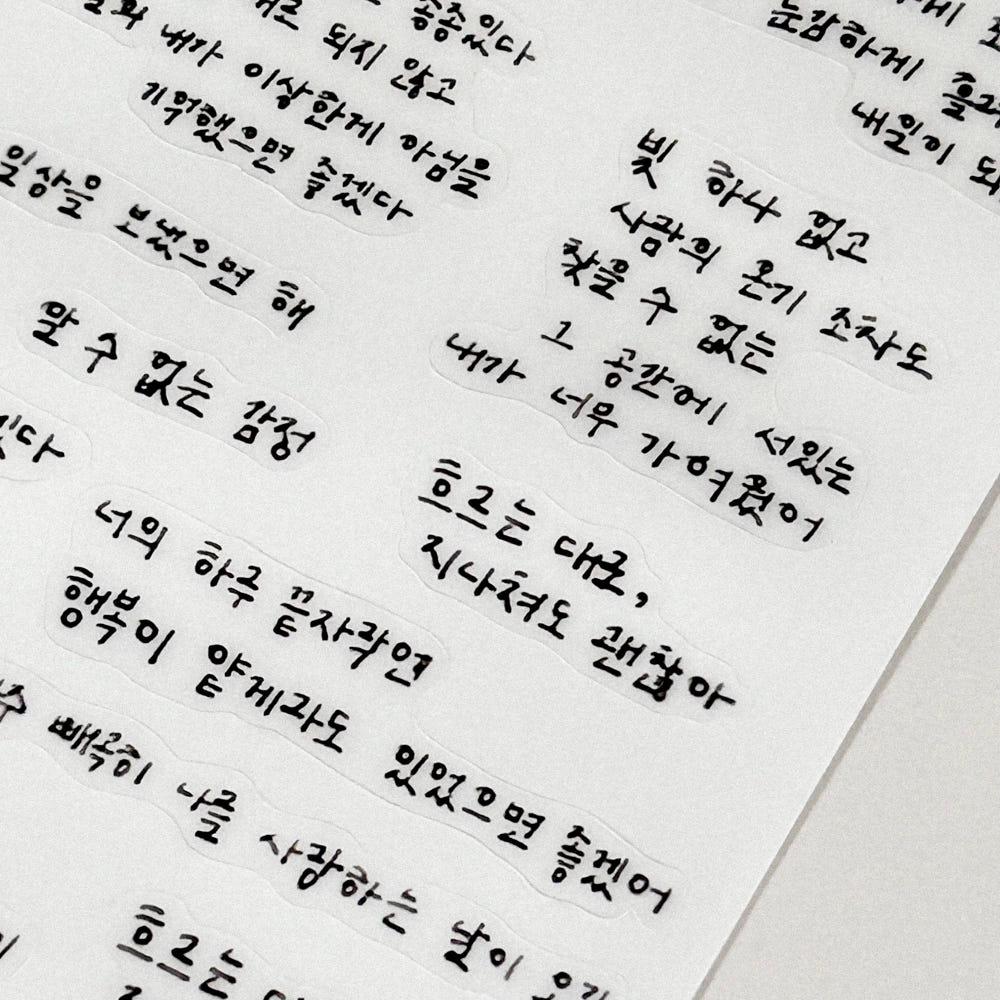 종종있다
되지 않고
내가 이상한게 아님을
기억했으면 좋겠다
일상을 보냈으면 해
알 수 없는 감정
너의 하루 끝자락엔
행복이 얕게라도 있었으면 좋겠어
빼곡히 나를 사랑하는 날이
흐르는
눈감하게
내일이
빛 하나 없고
사람의 온기 조차도
찾을 수 없는
그 공간에 서있는
내가 너무 가여웠어
흐르는 대로,
지나쳐도 괜찮아